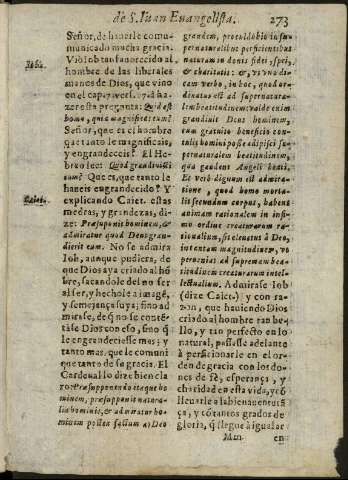 de S. Iuan Euangelista. 273
Señor, de hauerle comu-
municado mucha gracia.
Vió Iob tan fauorecido al
hombre de las liberales
manos de Dios, que vino
en el cap. 7. verso. 17. á ha-
zer esta pregunta: Quid est
homo, quia magnificas eum?
Señor, que es el hombre
que tanto le magnificais,
y engrandeceis? El He-
breo lee: Quod grandificasti
eum? Que es, que tanto le
haueis engrandecido? Y
explicando Caiet. estas
medras, y grandezas, di-
ze: Præsupponit hominem, &
admiratur quod Deus gran-
dierit eum. No se admira
Iob, aunque pudiera, de
que Dios aya criado al hó
bre, sacandole del no ser
al ser, y hechole a imagē,
y semejança suya; sino ad
mirase, de q̃ no se conté-
tàse Dios con eso, sino q̃
le engrandeciesse mas; y
tanto mas, que le comuni
que tanto de su gracia. El
Cardenal lo dize bien cla
ro: Præsupponendo itaque ho
minem, præsupponit natura-
lia hominis, & admiratur ho-
minem posses factum a Deo
Iob 7.
Caiet.
grandem, prouehendo in su-
pernaturalibus perficientibus
naturam in donis fidei, spei,
& charitatis: &, vt vno di-
cam verbo, in hoc, quod or-
dinatus est ad supernatura-
lem beatitudinem: valde enim
grandiuit Deus hominem,
cum gratuito beneficio con-
tulis homini posse adipisci su-
pernaturalem beatitudinem,
qua gaudent Angeli beati.
Et verè dignum est admira-
tione, quod homo morta-
lis secundum corpus, habens
animam rationalem in infi-
mo ordine creaturarum ra-
tionalium, sit eleuatus à Deo,
in tantam magnitudinem, vt
perueniat ad supremam bea-
titudinem creaturarum intel-
lectualium. Admirase Iob
(dize Caiet.) y con ra-
zon, que hauiendo Dios
criado al hombre tan be-
llo, y tan perfecto en lo
natural, passasse adelante
à perficionarle en el or-
den de gracia con los do-
nes de fè, esperança, y
charidad en esta vida, y có
lleuarle a la bienauenturá
ça, y có tantos grados de
gloria, q̃ llegue à igualar
Mm en